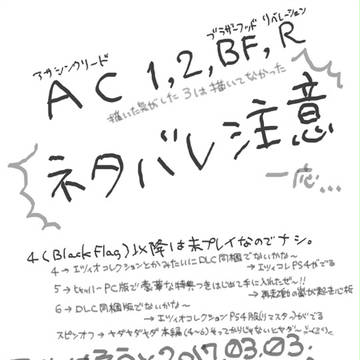 アサシンクリード ブラザーフッド リベレーション
AC 1,2,BF,R
描いた気がした3は描いてなかった
ネタバレ注意
一応…
4(BlackFlag)以降は未プレイなのでナシ。
4→エツィオコレクションとかみたいにDLC同梱でないかな〜
→エツィコレPS4がでる
5→ PC版で豪華な特典つきはじめて手に入れたぜ〜!!
→再起動の嵐が起き心折
6→DLC同梱版でないかな〜
→エツィオコレクションPS4版(リマスター)がでる
スピンオフ→ヤダヤダヤダ本編(4〜6)そってからじゃないとヤダ〜
2017.03.03.